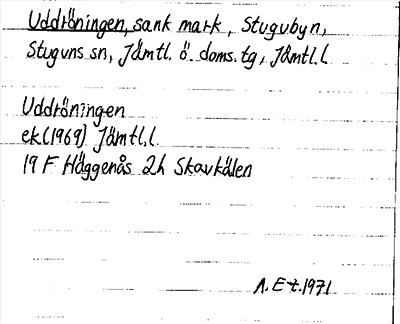 Uddröningen, sank mark, Stugubyn,
Stuguns sn, Jämtl. ö. doms. tg, Jämtl. l
Uddröningen
ek (1969) Jämtl. l.
19 F Häggenås 2h Skavkälen
A. E-t. 1971